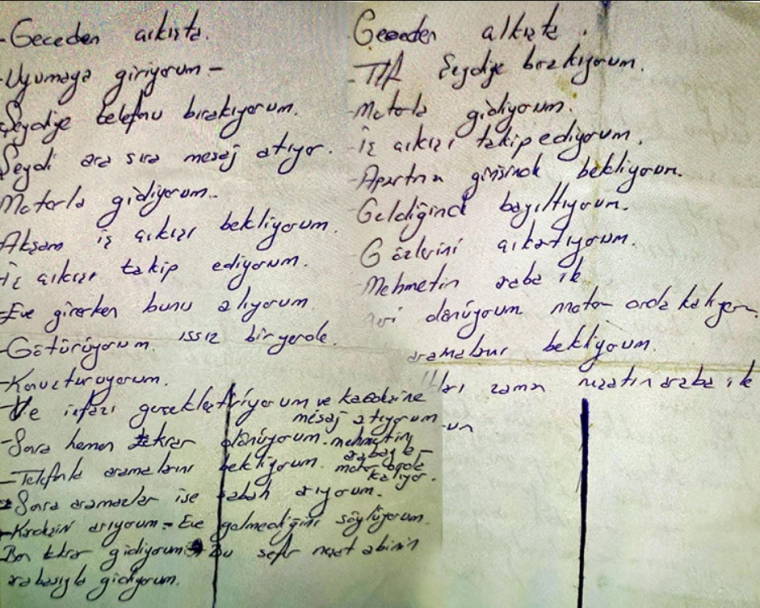 - Geceden çıkışta.
- Uyumaya giriyorum -
Seydiye telefonu bırakıyorum.
Seydi ara sıra mesaj atıyor.
Motorla gidiyorum.
Akşam iş çıkışı bekliyorum.
İş çıkışı takip ediyorum.
- Eve girerken bunu alıyorum
- Götürüyorum. ıssız bir yerde.
- Konuşturuyorum.
- Ve infazı gerçekleştiriyorum ve kardeşine
mesaj atıyorum
- Sora hemen tekrar dönüyorum. mehmetin
arabayla -
motor orda
kalıyor.
- Telefonla aramalarını bekliyorum.
- Sora aramazlar ise sabah arıyorum.
- Kardeşin arıyorum - Eve gelmediğini söylüyorum.
Ben tekrar gidiyorum Bu sefer nejat abinin
arabasıyla gidiyorum.
Geceden çıkışta.
- Seydiye bırakıyorum.
- Motorla gidiyorum.
- İş çıkışı takip ediyorum.
- Apartman girişinde bekliyorum.
Geldiğinde bayıltıyorum.
Gözlerini
- Mehmetin araba ile
dönüyorum motor orda kalıyor.
bekliyorum.
zaman araba ile